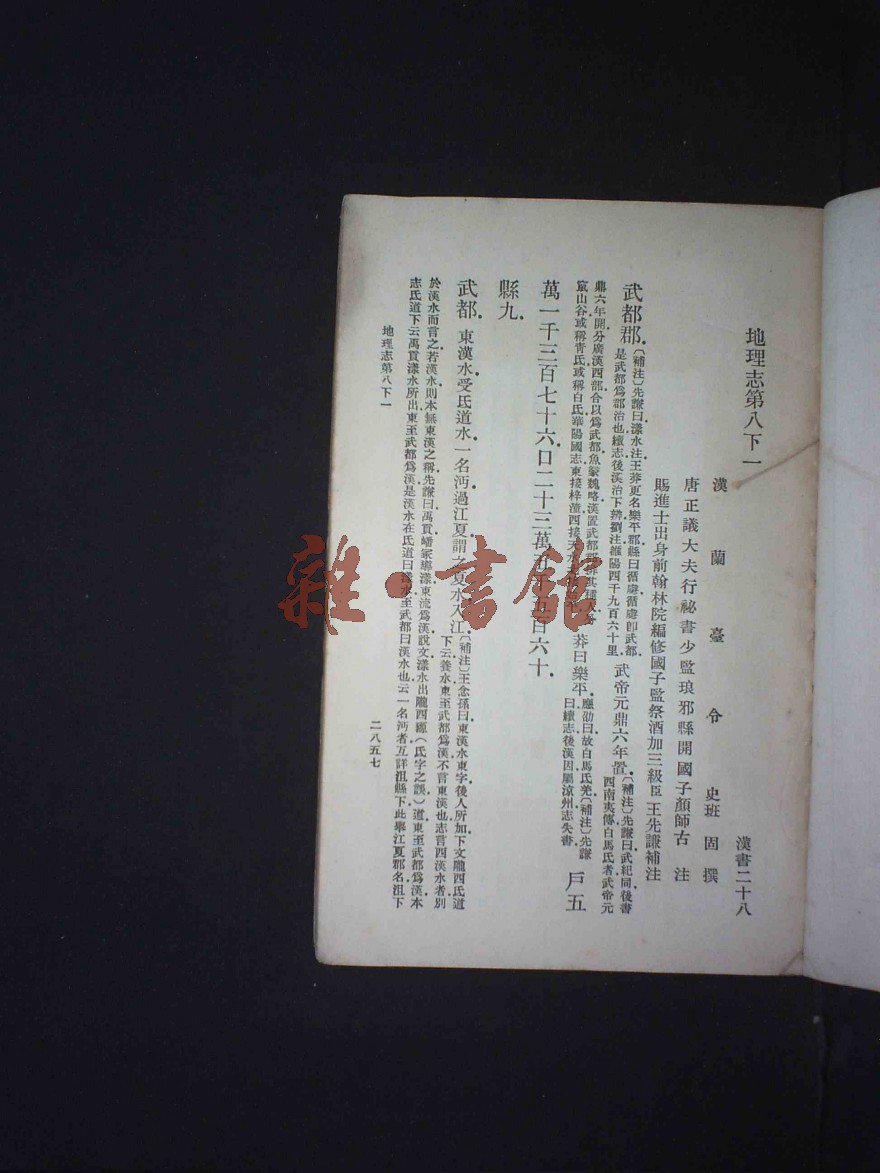 地理志第八下一
漢書二十八
漢蘭臺令史班固撰
唐正議大夫行祕書少監琅邪縣開國子顏師古注
賜進士出身前翰林院編修國子監祭酒加三級臣王先謙補注
武都郡．〔補注〕先謙曰．漾水注．王莽更名樂平郡．縣曰循虜．循虜卽武都．
是武都爲郡治也．續志後漢治下辨．劉注．雒陽西千九百六十里．
武帝元鼎六年置．〔補注〕先謙曰．武紀同．後書
西南夷傳．白馬氐者．武帝元
鼎六年開．分廣漢西部合以爲武都．魚豢魏略．漢置武都郡．排其種人．分
竄山谷．或稱青氐．或稱白氐．華陽國志．東接梓潼．西接天水
莽曰樂平．應劭曰．故白馬氐羌．〔補注〕先謙
曰．續志後漢因．屬涼州．志失書．
戶五
萬一千三百七十六．口二十三萬五千五百六十．
縣九．
武都．東漢水受氐道水．一名沔．過江夏．謂之夏水．入江．〔補注〕王念孫曰．東漢水東字．後人所加．下文隴西氐道
下云．養水東至武都爲漢．不言東漢也．志言西漢水者．別
於漢水而言之．若漢水．則本無東漢之稱．先謙曰．禹貢嶓冢導漾．東流爲漢．說文．漾水出隴西𧰙（氐字之誤）道．東至武都爲漢．本
志氐道下云．禹貢漾水所出．東至武都爲漢．是漢水在氐道曰漾水．至武都曰漢水也．云一名沔者．互詳沮縣下．此舉江夏郡名．沮下
地理志第八下一
二八五七
雜·書館